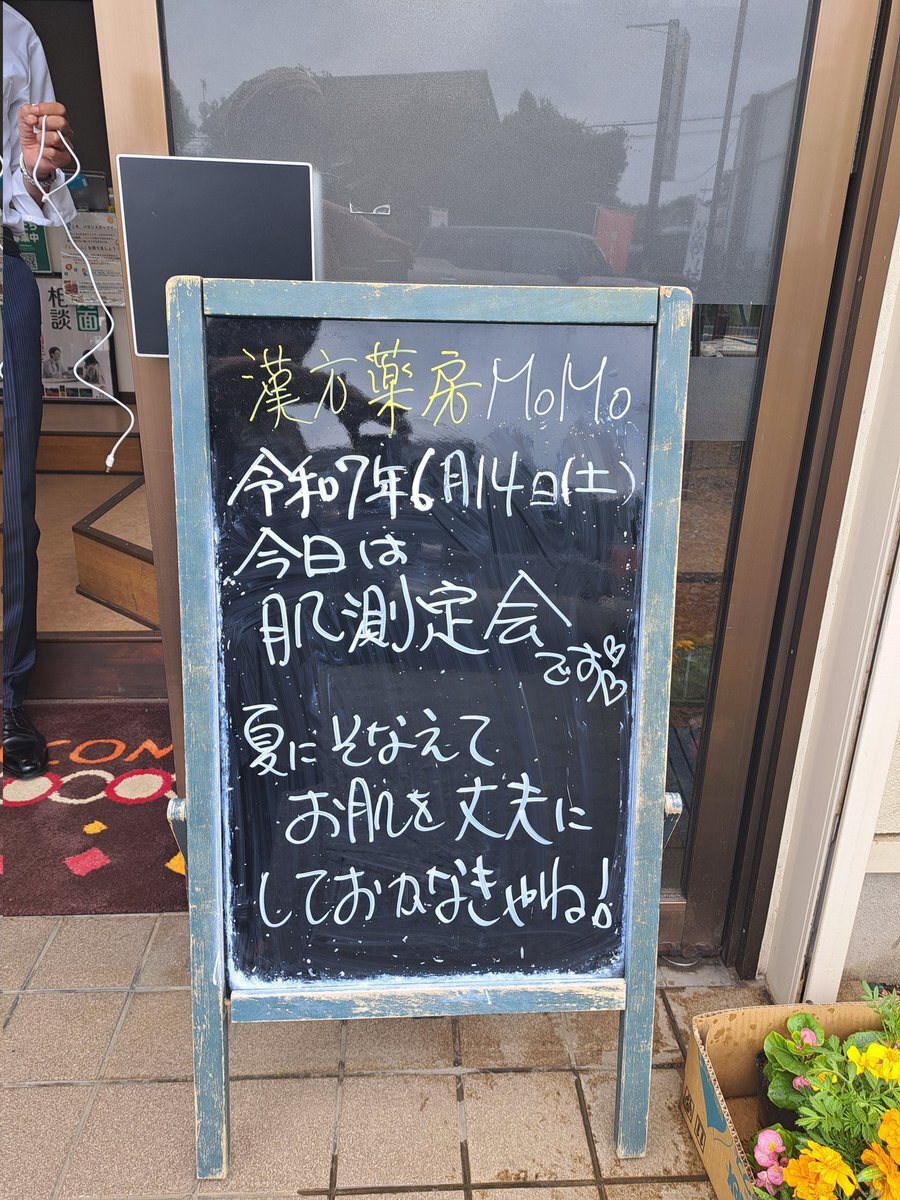 漢方薬房 MoMo
令和7年6月14日(土)
今日は
肌測定会
です
夏にそなえて
お肌を丈夫に
しておかなきゃね!
相談
CON